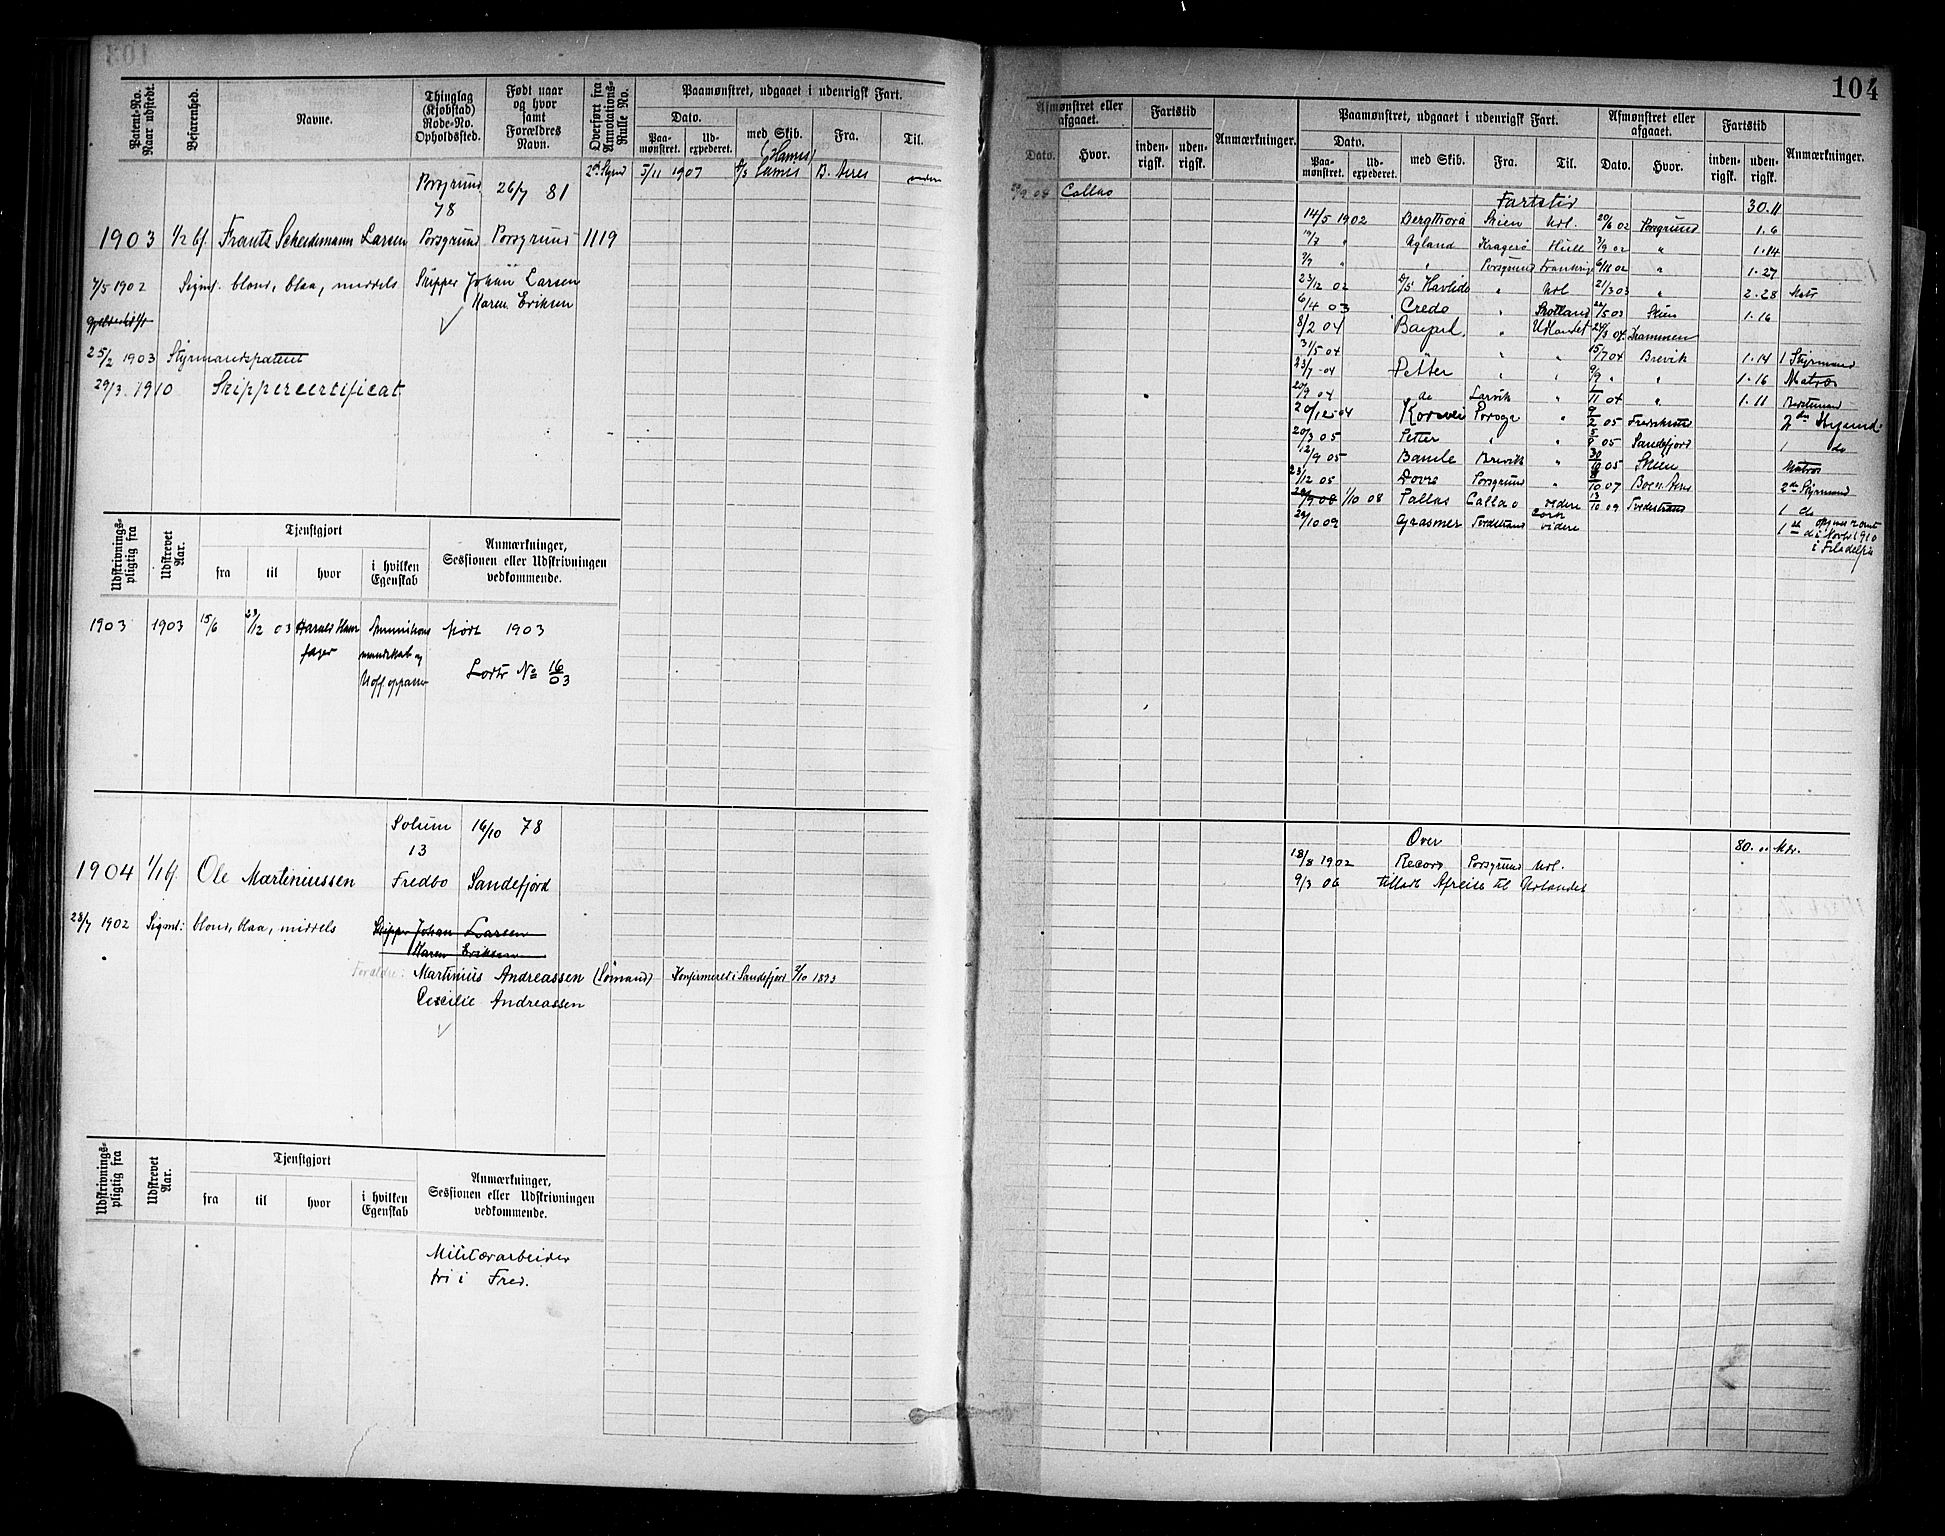 104
Patent-No. Naar udstedt.
Befarenhed.
Navne.
Thinglag (Kjøbstad) Rode-No. Opholdssted.
Født naar og hvor samt Forældres Navn.
Overført fra Annotations-Rulle No.
Paamønstret, udgaaet i udenrigsk Fart.
Dato.
Paa-mønstret.
Ud-expederet.
med Skib.
Fra.
Til.
Afmønstret eller afgaaet.
Dato.
Hvor.
Fartstid
inden-rigsk.
uden-rigsk.
Anmærkninger.
Paamønstret, udgaaet i udenrigsk Fart.
Dato.
Paa-mønstret.
Ud-expederet.
med Skib.
Fra.
Til.
Afmønstret eller afgaaet.
Dato.
Hvor.
Fartstid
inden-rigsk.
uden-rigsk.
Anmærkninger.
Porsgrund 26/7 81 3/11 1907 B. Aires
78
1903 1/2 bf. Frants Scheidemann Larsen Porsgrund Porsgrund 1119
7/5 1902 Signt. blond, blaa, middels Skipper Johan Larsen
Maren Eriksen
25/2 1903 Styrmandspatent
29/3 1910 Skippercertificat
Callao
Fartstid 30.11
14/5 1902 Bergthora Skien Udl. 20/6 02 Porsgrund 1.6
Agland Kragerø Hull 3/9 02 " 1.14
" Porsgrund Frankrige " 1.27
23/12 02 D/S Havlide " Udl 21/3 03 " 2.28 Matr
6/4 03 Credo " Skotland 22/5 03 Skien 1.16
8/2 04 " Udlandet
31/5 04 " " 15/7 04 Brevik 1.14 1 Styrmand
23/7 04 Petter " " 9/9 " " 1.16 Matros
20/9 04 do Larvik " 1/11 04 " 1.11
20/12 04 Korsvei Porsgr " 9/2 05 2den Styrmd.
20/3 05 Petter " " 5/9 05 Sandefjord 1 do
12/9 05 Bamle Brevik " 30/10 05 Skien Matros
23/12 05 Dovre Porsgrund " 10 07 Buen. Aires 2den Styrmand
1/10 08 Pallas Callao videre 13/10 09 Tvedestrand 1 do
29/10 09 Grasmer Tvedestrand videre
i Filadelfia
Udskrivnings-pligtig fra
Udskrevet Aar.
Tjenstgjort
fra
til
hvor
i hvilken Egenskab
Anmærkninger, Sessionen eller Udskrivningen vedkommende.
1903 1903 15/6 23/12 03 Harald Haar Ammunitions Mødt 1903
fager mandskab og
Uoff oppasser Lodtr No 16/03
Solum 16/10 78
13
1904 1/1 bf. Ole Martiniussen Fredbo Sandefjord
28/7 1902 Signt: blond, blaa, middels Skipper Johan Larsen
Maren Eriksen
Forældre: Martinius Andreassen (Sømand) Konfirmeret i Sandefjord 2/10 1893
Cecilie Andreassen
Over 80. " Mdr.
18/8 1902 Record Porsgrund Udl.
9/3 06 tilladt Afreise til Udlandet
Udskrivnings-pligtig fra
Udskrevet Aar.
Tjenstgjort
fra
til
hvor
i hvilken Egenskab
Anmærkninger, Sessionen eller Udskrivningen vedkommende.
Militærarbeider
fri i Fred.